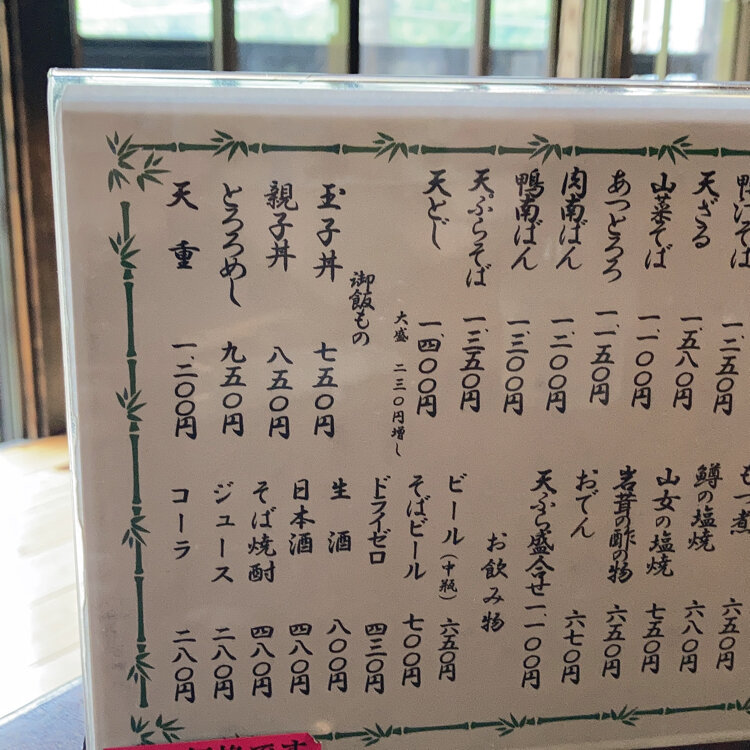 鴨汁そば 一、二五〇円
天ざる 一、五八〇円
山菜そば 一、一〇〇円
あつとろろ 一、一五〇円
肉南ばん 一、二〇〇円
鴨南ばん 一、三〇〇円
天ぷらそば 一、三五〇円
天とじ 一、四〇〇円
大盛 二三〇円増し
御飯もの
玉子丼 七五〇円
親子丼 八五〇円
とろろめし 九五〇円
天重 一、二〇〇円
もつ煮 六五〇円
鱒の塩焼 六八〇円
山女の塩焼 七五〇円
岩茸の酢の物 六五〇円
おでん 六七〇円
天ぷら盛合せ 一、一〇〇円
お飲み物
ビール（中瓶） 六五〇円
そばビール 七〇〇円
ドライゼロ 四三〇円
生酒 八〇〇円
日本酒 四八〇円
そば焼酎 四八〇円
ジュース 二八〇円
コーラ 二八〇円